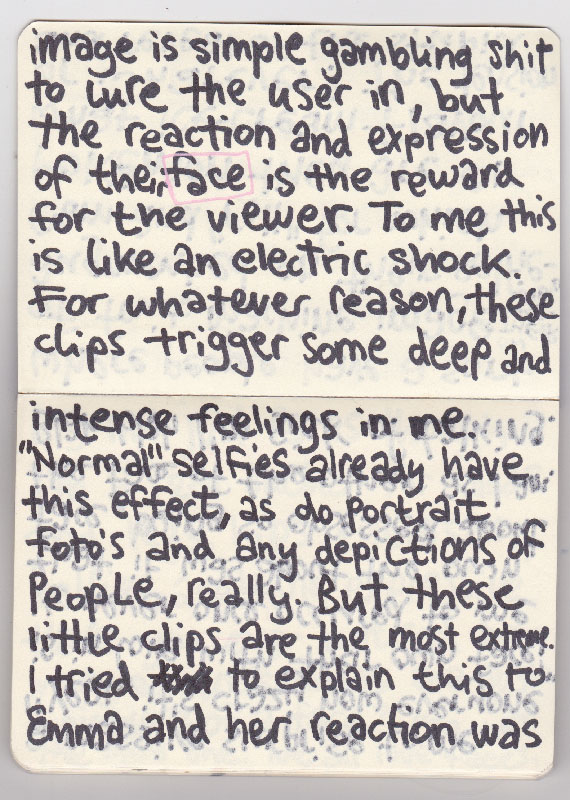 image is simple gambling shit
to lure the user in, but
the reaction and expression
of their face is the reward
for the viewer. To me this
is like an electric shock.
For whatever reason, these
clips trigger some deep and
intense feelings in me.
"Normal" selfies already have
this effect, as do portrait
foto's and any depictions of
People, really. But these
little clips are the most extreme.
I tried to explain this to
Emma and her reaction was